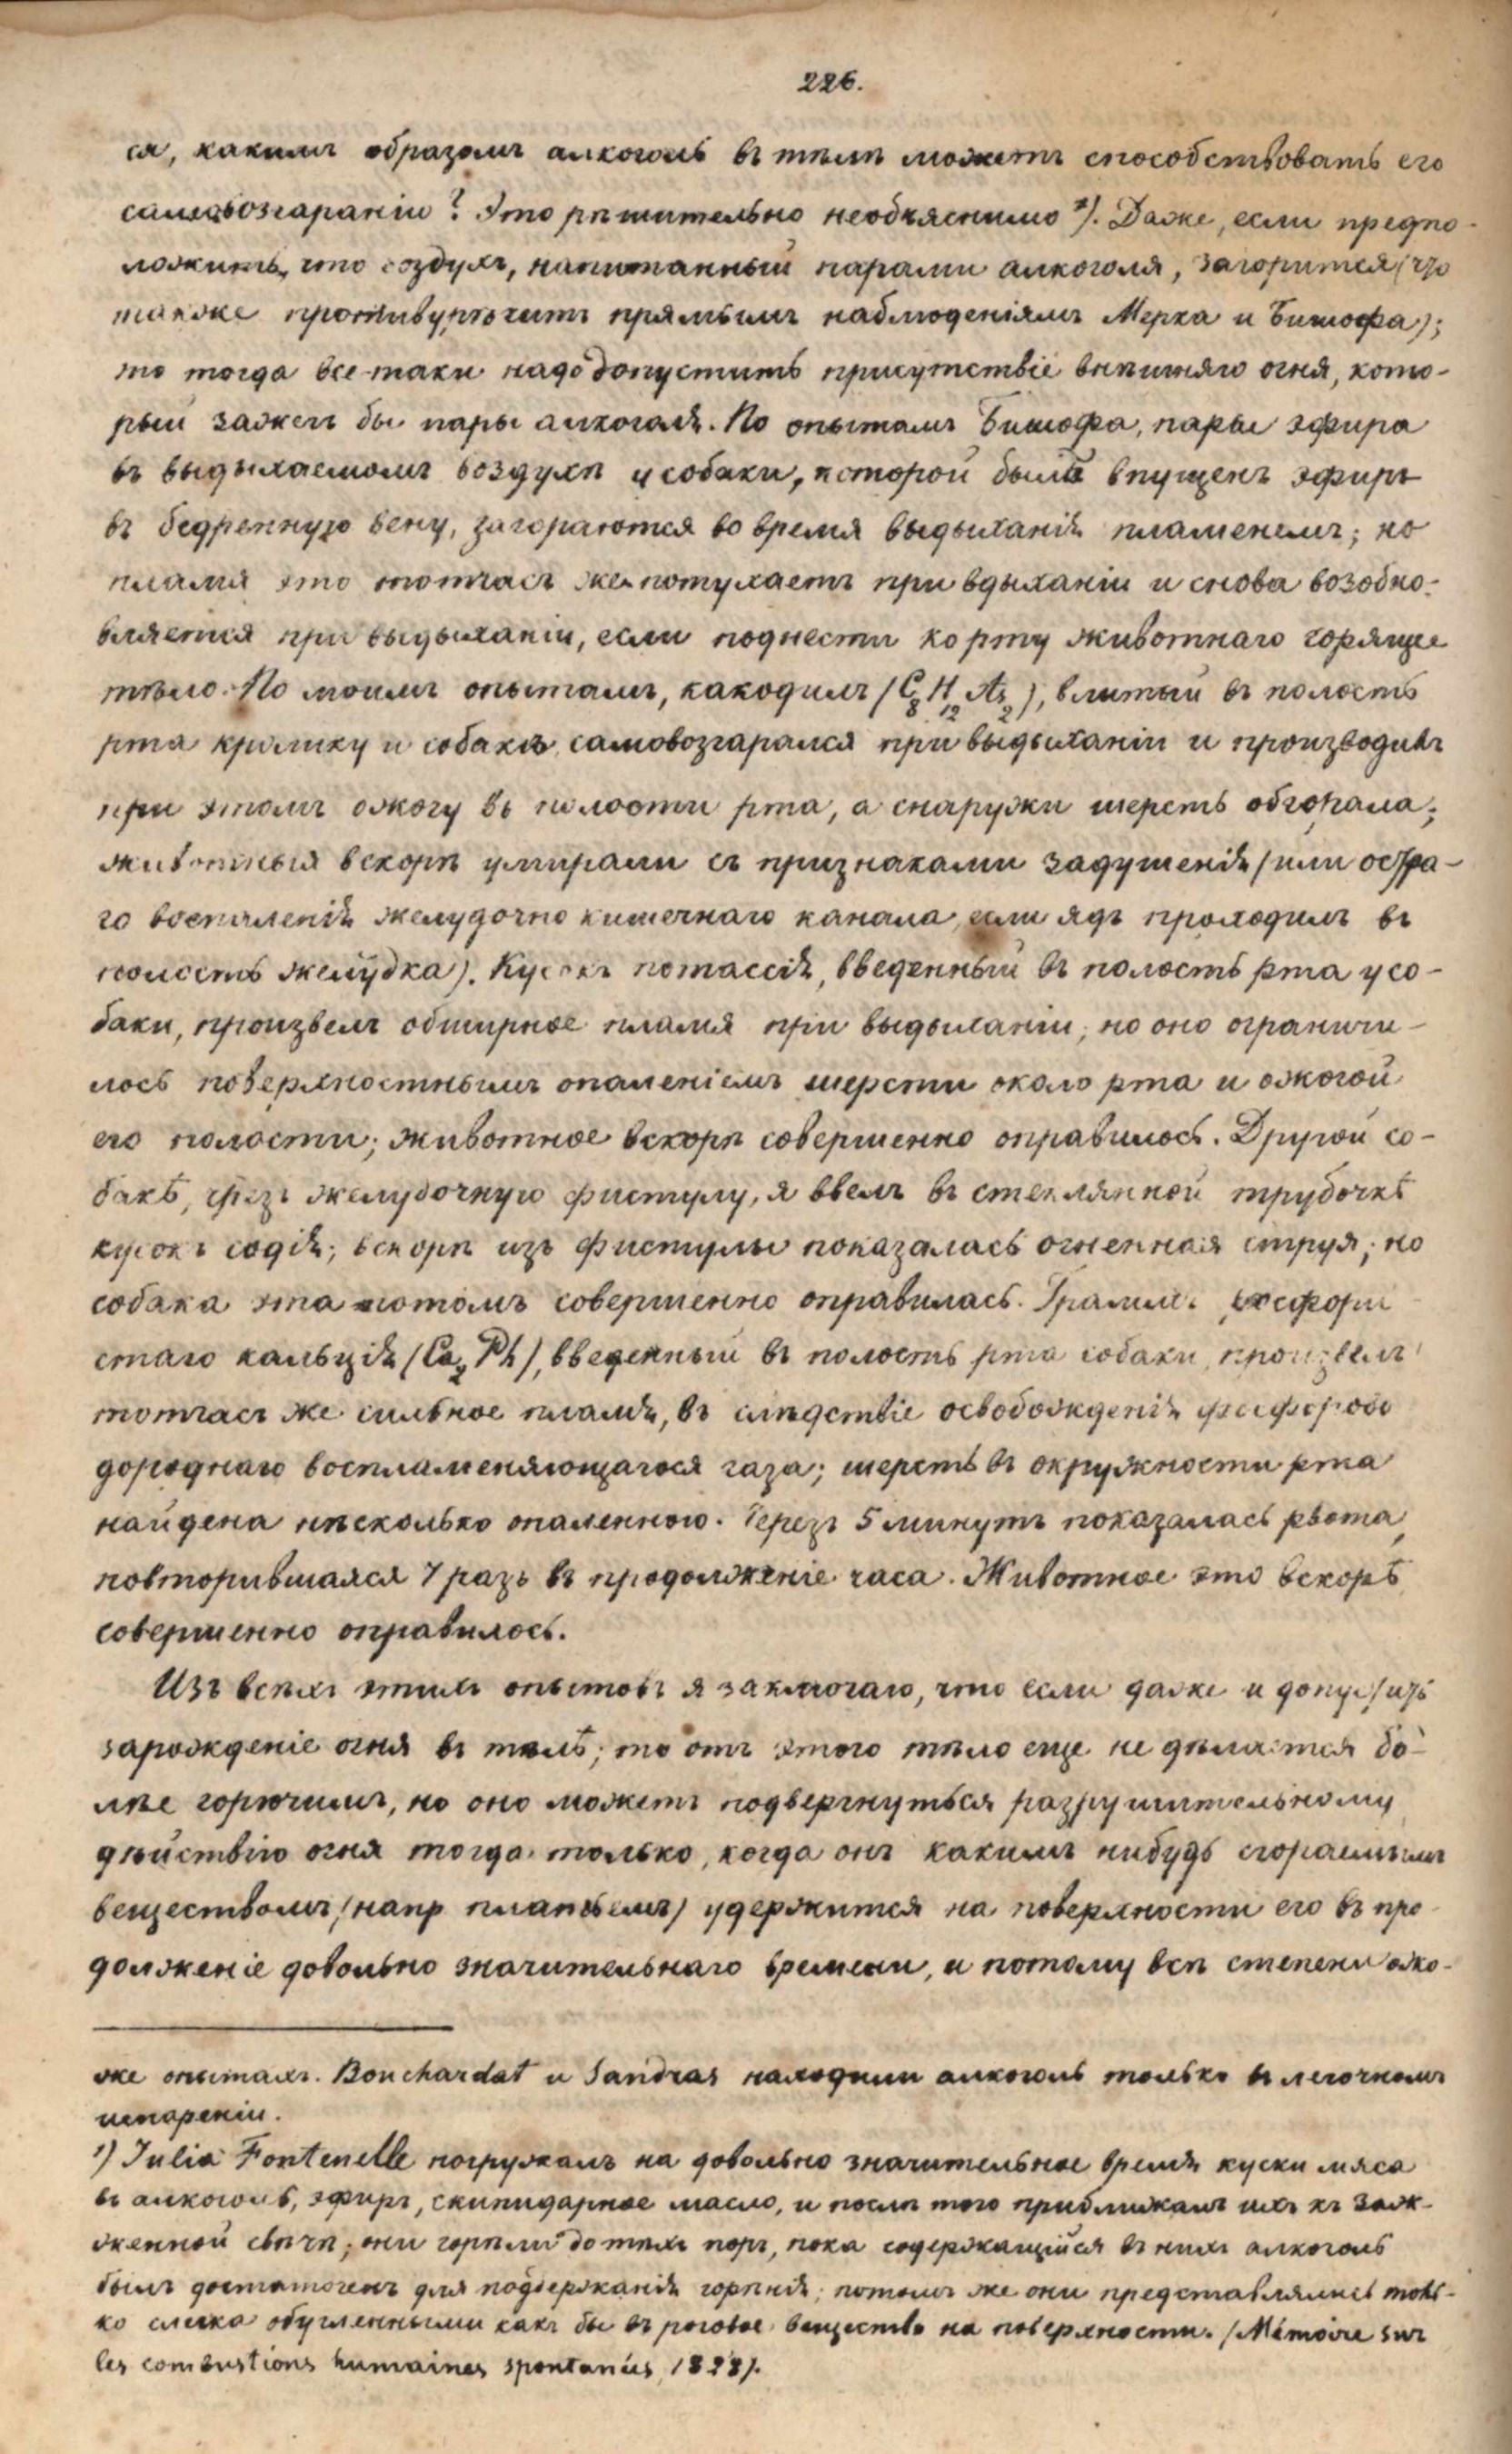 226.
ся, какимъ образомъ алкоголь въ тѣлѣ можетъ способствовать его
самовозгаранію? Это рѣшительно необъяснимо ¹). Даже, если предпо-
ложить, что воздухъ, напитанный парами алкоголя, загорится (что
также противурѣчитъ прямымъ наблюденіямъ Мерка и Бишофа);
то тогда все-таки надо допустить присутствіе внѣшняго огня, кото-
рый зажегъ бы пары алкоголя. По опытамъ Бишофа, пары эфира
въ выдыхаемомъ воздухѣ у собаки, которой былъ впущенъ эфиръ
въ бедренную вену, загораются во время выдыханія пламенемъ; но
пламя это тотчасъ же потухаетъ при вдыханіи и снова возобно-
вляется при выдыханіи, если поднести ко рту животнаго горящее
тѣло. По моимъ опытамъ, какодилъ (C8 H12 As2), влитый въ полость
рта кролику и собакѣ, самовозгарался при выдыханіи и производилъ
при этомъ ожогу въ полости рта, а снаружи шерсть обгорала;
животныя вскорѣ умирали съ признаками задушенія (или остра-
го воспаленія желудочно кишечнаго канала, если ядъ проходилъ въ
полость желудка). Кусокъ потассія, введенный въ полость рта у со-
баки, произвелъ обширное пламя при выдыханіи; но оно ограничи-
лось поверхностнымъ опаленіемъ шерсти около рта и ожогой
его полости; животное вскорѣ совершенно оправилось. Другой со-
бакѣ, чрезъ желудочную фистулу, я ввелъ въ стеклянной трубочкѣ
кусокъ содія; вскорѣ изъ фистулы показалась огненная струя; но
собака эта потомъ совершенно оправилась. Граммъ фосфори
стаго кальція (Ca2 Ph), введенный въ полость рта собаки, произвелъ
тотчасъ же сильное пламя, въ слѣдствіе освобожденія фосфорово
дороднаго воспламеняющагося газа; шерсть въ окружности рта
найдена нѣсколько опаленною. Черезъ 5 минутъ показалась рвота,
повторившаяся 7 разъ въ продолженіе часа. Животное это вскорѣ
совершенно оправилось.
Изъ всѣхъ этихъ опытовъ я заключаю, что если даже и допустить
зарожденіе огня въ тѣлѣ; то отъ этого тѣло еще не дѣлается бо-
лѣе горючимъ, но оно можетъ подвергнуться разрушительному
дѣйствію огня тогда только, когда онъ какимъ нибудь сгораемымъ
веществомъ (напр платьемъ) удержится на поверхности его въ про
долженіе довольно значительнаго времени, и потому всѣ степени ожо-
же опытахъ. Bouchardat и Sandras находили алкоголь только въ легочномъ
испареніи.
¹) Julia Fontenelle погружалъ на довольно значительное время куски мяса
въ алкоголь, эфиръ, скипидарное масло, и послѣ того приближалъ ихъ къ заж-
женной свѣчѣ; они горѣли до тѣхъ поръ, пока содержащійся въ нихъ алкоголь
былъ достаточенъ для поддержанія горѣнія; потомъ же они представлялись толь-
ко слегка обугленными какъ бы въ роговое вещество на поверхности. (Mémoire sur
les combustions humaines spontanées, 1828).